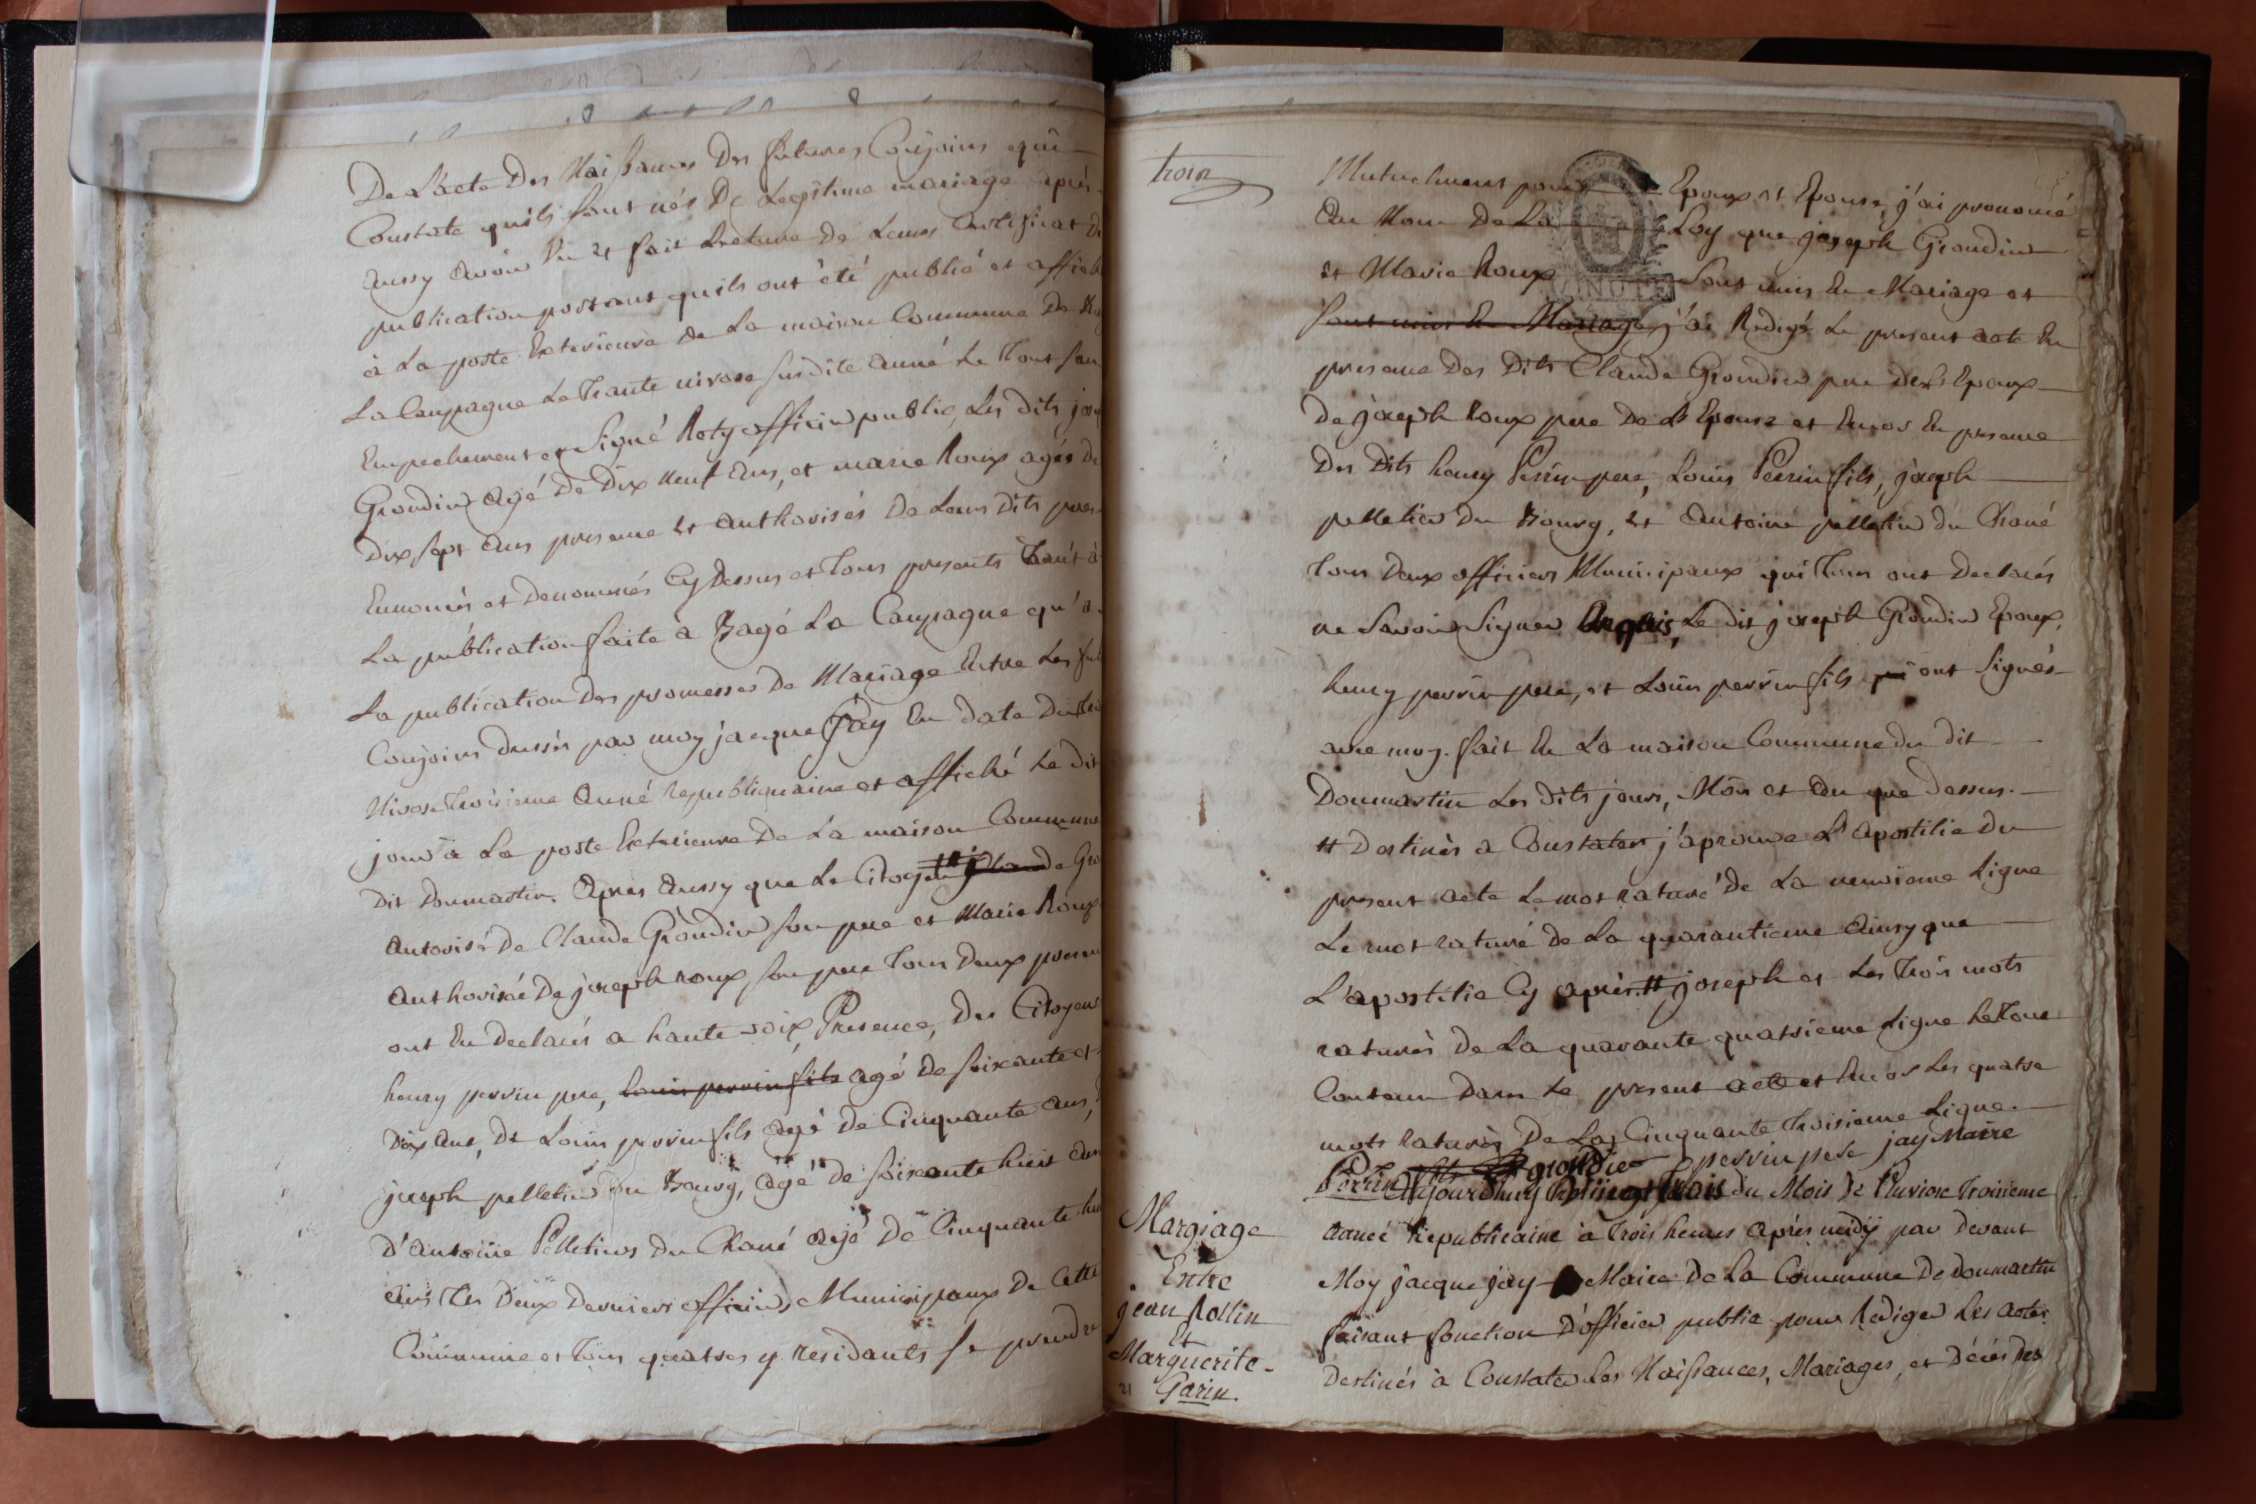 De L'acte Des Naissances Des futures Conjoins qui
Constate qu'ils sont nés De Legitime mariage après
Aussy avoir Vu et fait Lecture De Leurs Certificat De
publication portant quils ont été publié et affiché
à La porte Exterieure de La maison Commune De
La Campagne Le Trante nivose susdite anné Le Tout sans
Empechement et Signé Roty officier public, Les dits
Grondin agé De Dix neuf ans, et marie Roux agés De
Dix sept ans presence et authorisés De Leurs Dits peres
Ennomés et Denommés Cy Dessus et Tous presents Tant à
La publication faite a Bagé La Campagne qu'a
La publication Des promesses De Mariage Entre Les
Conjoins dressés par moy jacque Jay En date Du
Nivose Troisieme anné Republiquaine et affiché Le Dit
jour à La porte Exterieure De La maison Commune
Dit Donmartin. Apres Aussy que Le Citoyen Claude
Autorisé De Claude Grondin son pere et Marie Roux
Authorisé De joseph roux son pere Tous Deux presens
ont En Declarés a haute voix, Presence, Des Citoyens
henry perrin pere, Louis perrin fils agé de soixante et
Dix ans, De Louis perrin fils agé de Cinquante ans,
joseph pelletier Du Bourg, agé de soixante huit ans
D'antoine Pelletiers du Chané agé De Cinquante
ans Les Deux Derniers officiers Municipaux De Cette
Commune et Tous quatres y residants se prendre
trois
Mutuelment pour Epoux et Epouse, j'ai prononcé
Au Nom De La Loy que joseph Grondin
et Marie Roux Sont unis En Mariage et
Sont unis En Mariage, j'ai Redigé Le present acte En
presence Des Dits Claude Grondin pere De L'Epoux
De joseph Roux pere De L'Epouse et Encor En presence
Des Dits henry Perrin pere, Louis Perrin fils, joseph
pelletier Du Bourg, et Antoine pelletier du Chané
Tous Deux officiers Municipaux qui Tous ont Declarés
ne Savoir Signer Le dit joseph Grondin Epoux,
henry perrin pere, et Louis perrin fils qui ont Signés
avec moy. fait En La maison Commune du dit
Donmartin Les Dits jours, Mois et An que Dessus.
# Destinés a Constater j'aprouve L'Apostilie Du
present acte Le mot raturé De La neuvieme Ligne
Le mot raturé de La quarantieme Ainsy que
L'apostilie Cy après # joseph et Les Trois mots
raturés De La quarante quatrieme Ligne Le Tout
Contenu Dans Le present acte et Encor Les quatre
mots raturés De La Cinquante Troisieme Ligne.
Perrin fils grondin perrin pere jay Maire
Margiage
Entre
jean Rollin
Et
Marguerite
Garin
21
Aujourdhuy Vingt trois du Mois De Pluviose Troisieme
année Republicaine à Trois heures Après midÿ par Devant
Moy jacque jay Maire De La Commune De donmartin
faisant fonction D'officier public pour Rediger Les actes
Destinés à Constater Les Naissances, Mariages, et Décés Des